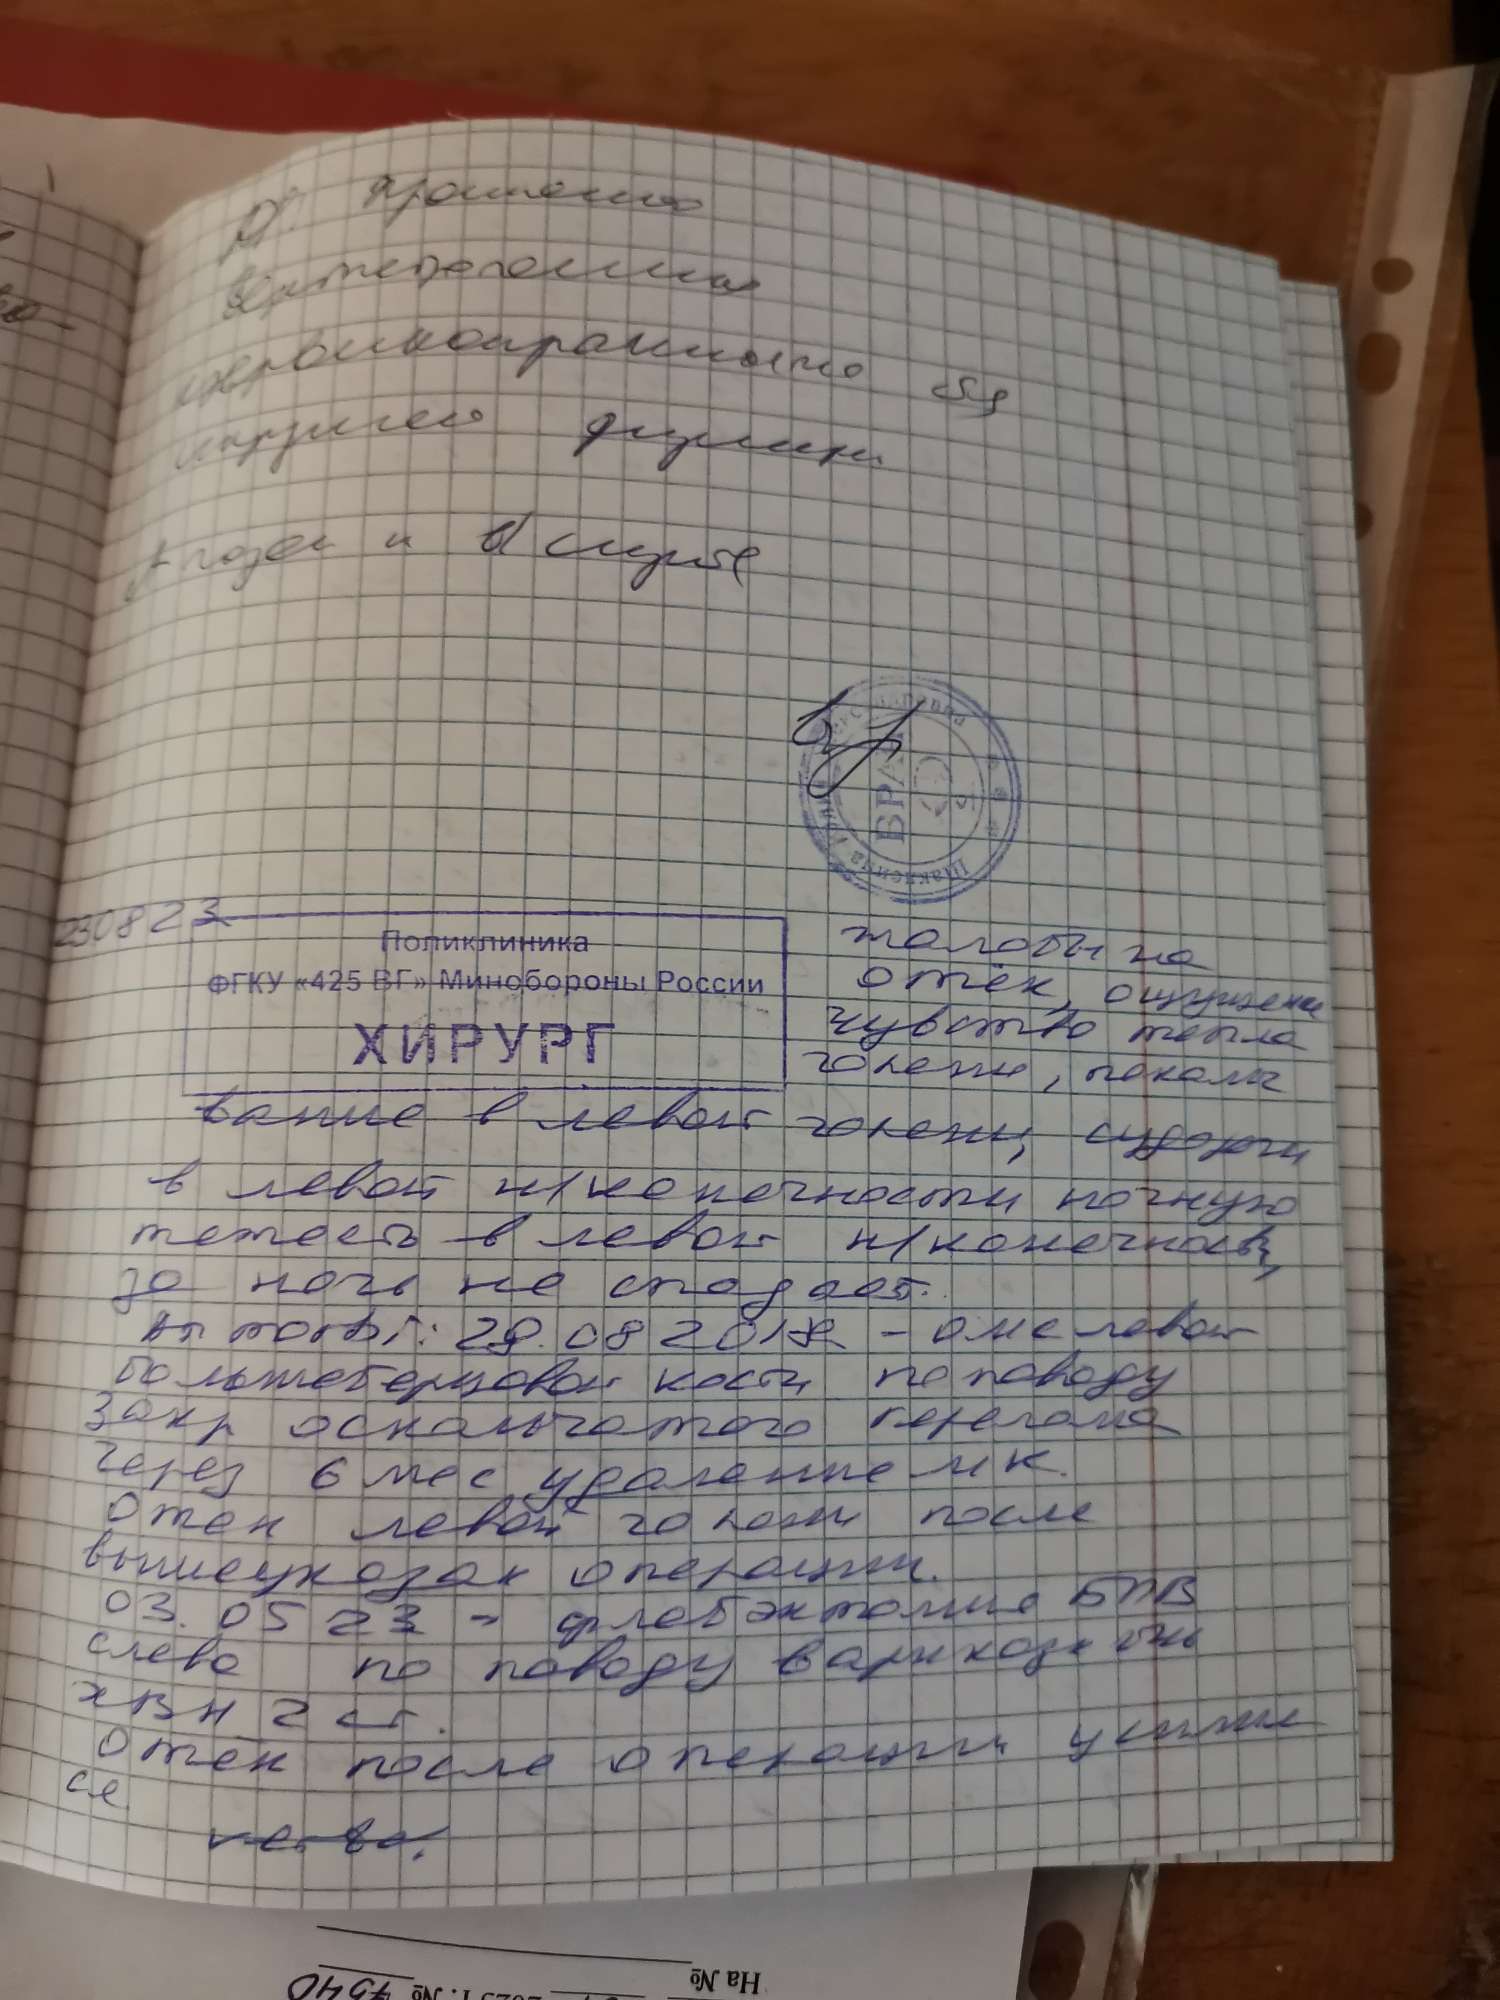 Ds: хроническая
вертеброгенная
нарушения функции
годен к в/службе
ВРАЧ
230823
Поликлиника
ФГКУ «425 ВГ» Минобороны России
ХИРУРГ
жалобы на
отёк, ощущение
чувство тепла
голени, покалы
вание в левой голени, судороги
в левой н/конечности ночную
тяжесть в левой н/конечности,
за ночь не спадает.
28.08 2018 - ОМС левой
большеберцовой кости по поводу
закр оскольчатого перелома
через 6 мес удаление МК.
Отек левой голени после
вышеуказан операции.
03.05 23 - флебэктомия БПВ
слева по поводу варикозн
ХВН 2 ст.
Отек после операции усилил
ся
На №
7540